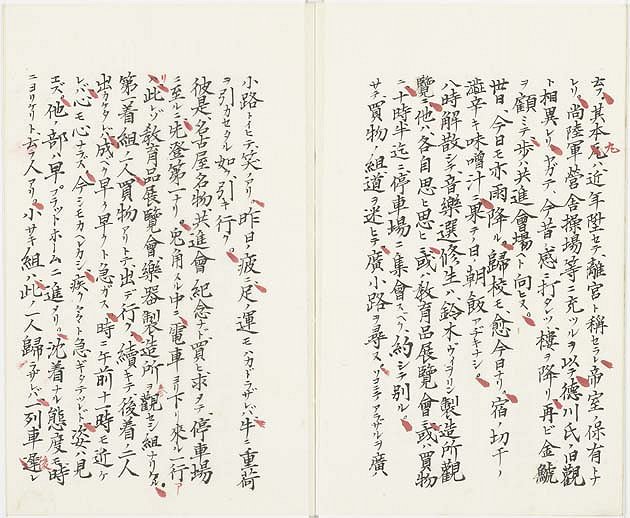 云フ、其本丸ハ近年陞セテ離宮ト稱セラレ帝室ノ保有トナ
レリ。尚陸軍營舎操場等ニ充ツルヲ以テ德川氏ノ旧觀
ト相異レリ。ヤガテ、今昔ノ感ニ打タレツヽ樓ヲ降リ、再ビ金鯱
ヲ顧ミテ歩ヲ共進會場ヘト向ヒヌ。
丗日、今日モ亦雨降ル。歸校モ愈今日ナリ。宿ノ切干ノ
澁辛キ味噌汁ニ
ノ朝飯アヂキナシ。
八時解散シテ音樂選修生ハ鈴木ヴァイオリン製造所觀
覽ニ、他ハ各自思ヒ思ヒニ或ハ教育品展覽會ニ或ハ買物
ニ、十時半迄ニ停車場ニ集會スベク約シテ別ル。
サテ買物ノ組、道ヲ迷ヒテ廣小路ヲ尋ヌ、ソコニアラザルヲ廣ハ
小路トイヒテ笑ヘリ。昨日ノ疲ニ足ノ運モハカドラザレバ、牛ニ重荷
ヲ引カセタル如ク引キ行ク。
彼是名古屋名物共進會紀念ナド買ヒ求メテ、停車場
ニ至ルニ先登第一ナリ。兎角スル中ニ電車ヨリ下リ來ル一行ア
リ、此レゾ教育品展覽會樂器製造所ヲ觀セシ組ナリケル。
第一着ノ組ノ二人買物アリトテ出デ行ク、續キテ後着ノ二人
出カケタレバ、成ベク早ク早クト急ガス。時ニ午前十一時モ近ケ
レバ、心モ心ナラズ、今シモカヘレカシ疾クカヘレト急ギタマヘレド姿ハ見
エズ。他ノ一部ハ早プラットホームニ進メリ。沈着ナル態度モ時
ニヨリケリト云フ人アリ。小サキ組ハ此ノ一人歸ラザレバ一列車遲レ